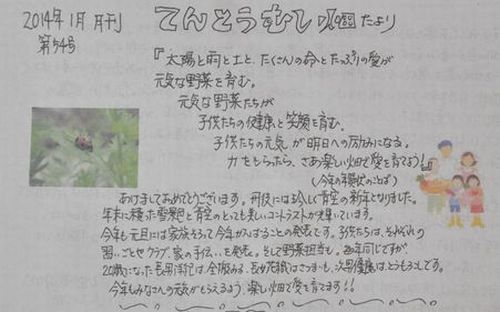 2014年1月 月刊
第54号
てんとうむし畑だより
『太陽と雨と土と、たくさんの命とたっぷりの愛が
元気な野菜を育む。
元気な野菜たちが
子供たちの健康と笑顔を育む。
子供たちの元気が明日への励みになる。
力をもらったら、さあ楽しい畑で愛を育てよう!』
(今年の年賀状のことば)
あけましておめでとうございます。丹後には珍しく青空の新年となりました。
年末に積った雪と青空のとても美しいコントラストが光輝いています。
今年も元旦には家族そろって今年がんばることの発表です。子供たちは、それぞれの
習いごとやクラブ、家の手伝いを発表。そして野菜担当も。毎年同じですが
20歳になった長男は全般みる、長女花織はさつまいも、次男優鷹はとうもろこしです。
今年もみなさんの元気がもらえるよう、楽しい畑で愛を育てます!!